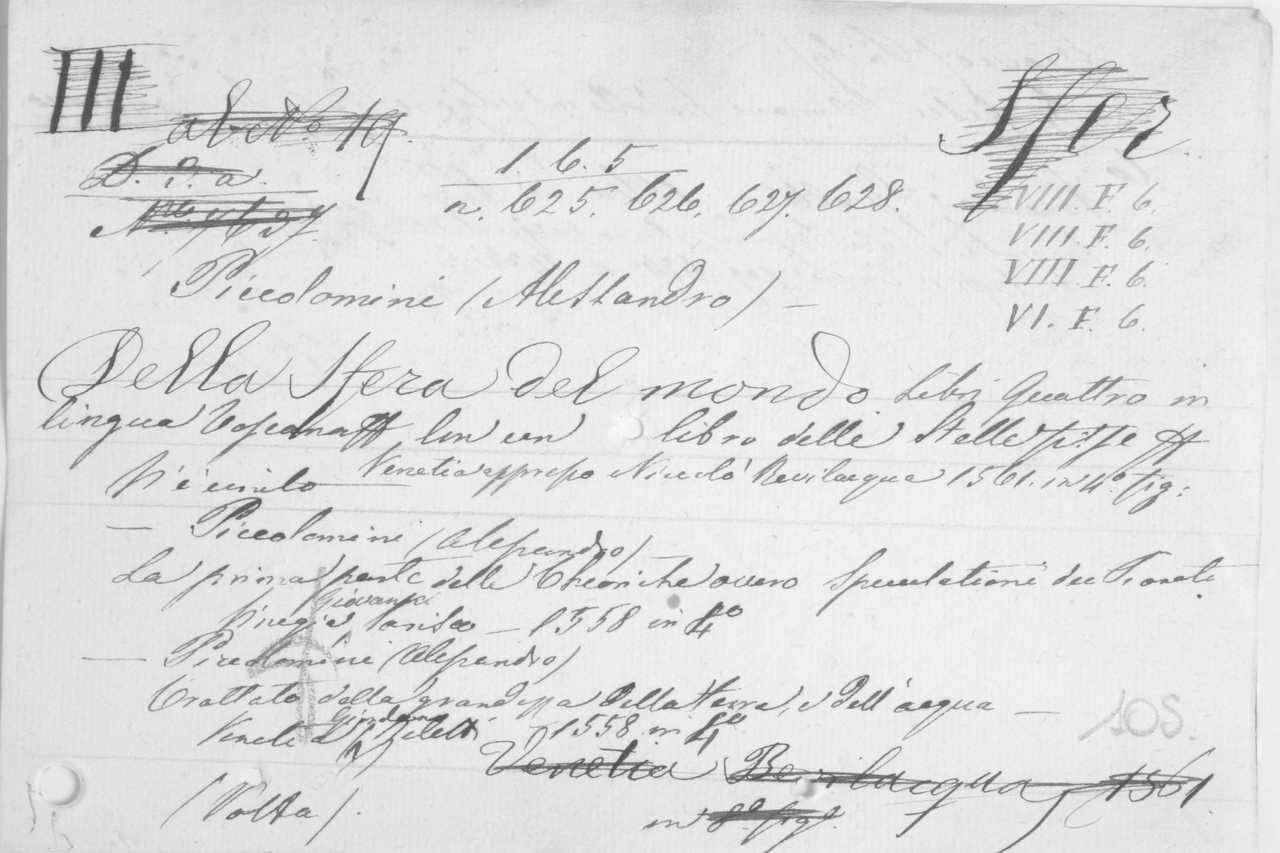 III
Sfer.
D. 3. a.
1. 6. 5
n. 625. 626. 627. 628.
VIII. F. 6.
VIII. F. 6.
VIIII. F. 6.
VI. F. 6.
Piccolomini (Alessandro) —
Della Sfera del mondo Libri Quattro in
lingua Toscana, Con un libro delle Stelle fisse
Venetia appresso Nicolò Bevilacqua 1561. in 4.° fig:
V'è unito
— Piccolomini (Alessandro) —
La prima parte delle Theoriche overo Speculationi dei Pianeti
Giovanni
Vinegia Varisco — 1558 in 4°
— Piccolomini (Alessandro)
Trattato della grandezza della terra, e dell'acqua —
Giordano
Venetia Ziletti 1558 in 4°
105.
Venetia Bevilacqua 1561.
in 8.° fig.
(Volta).